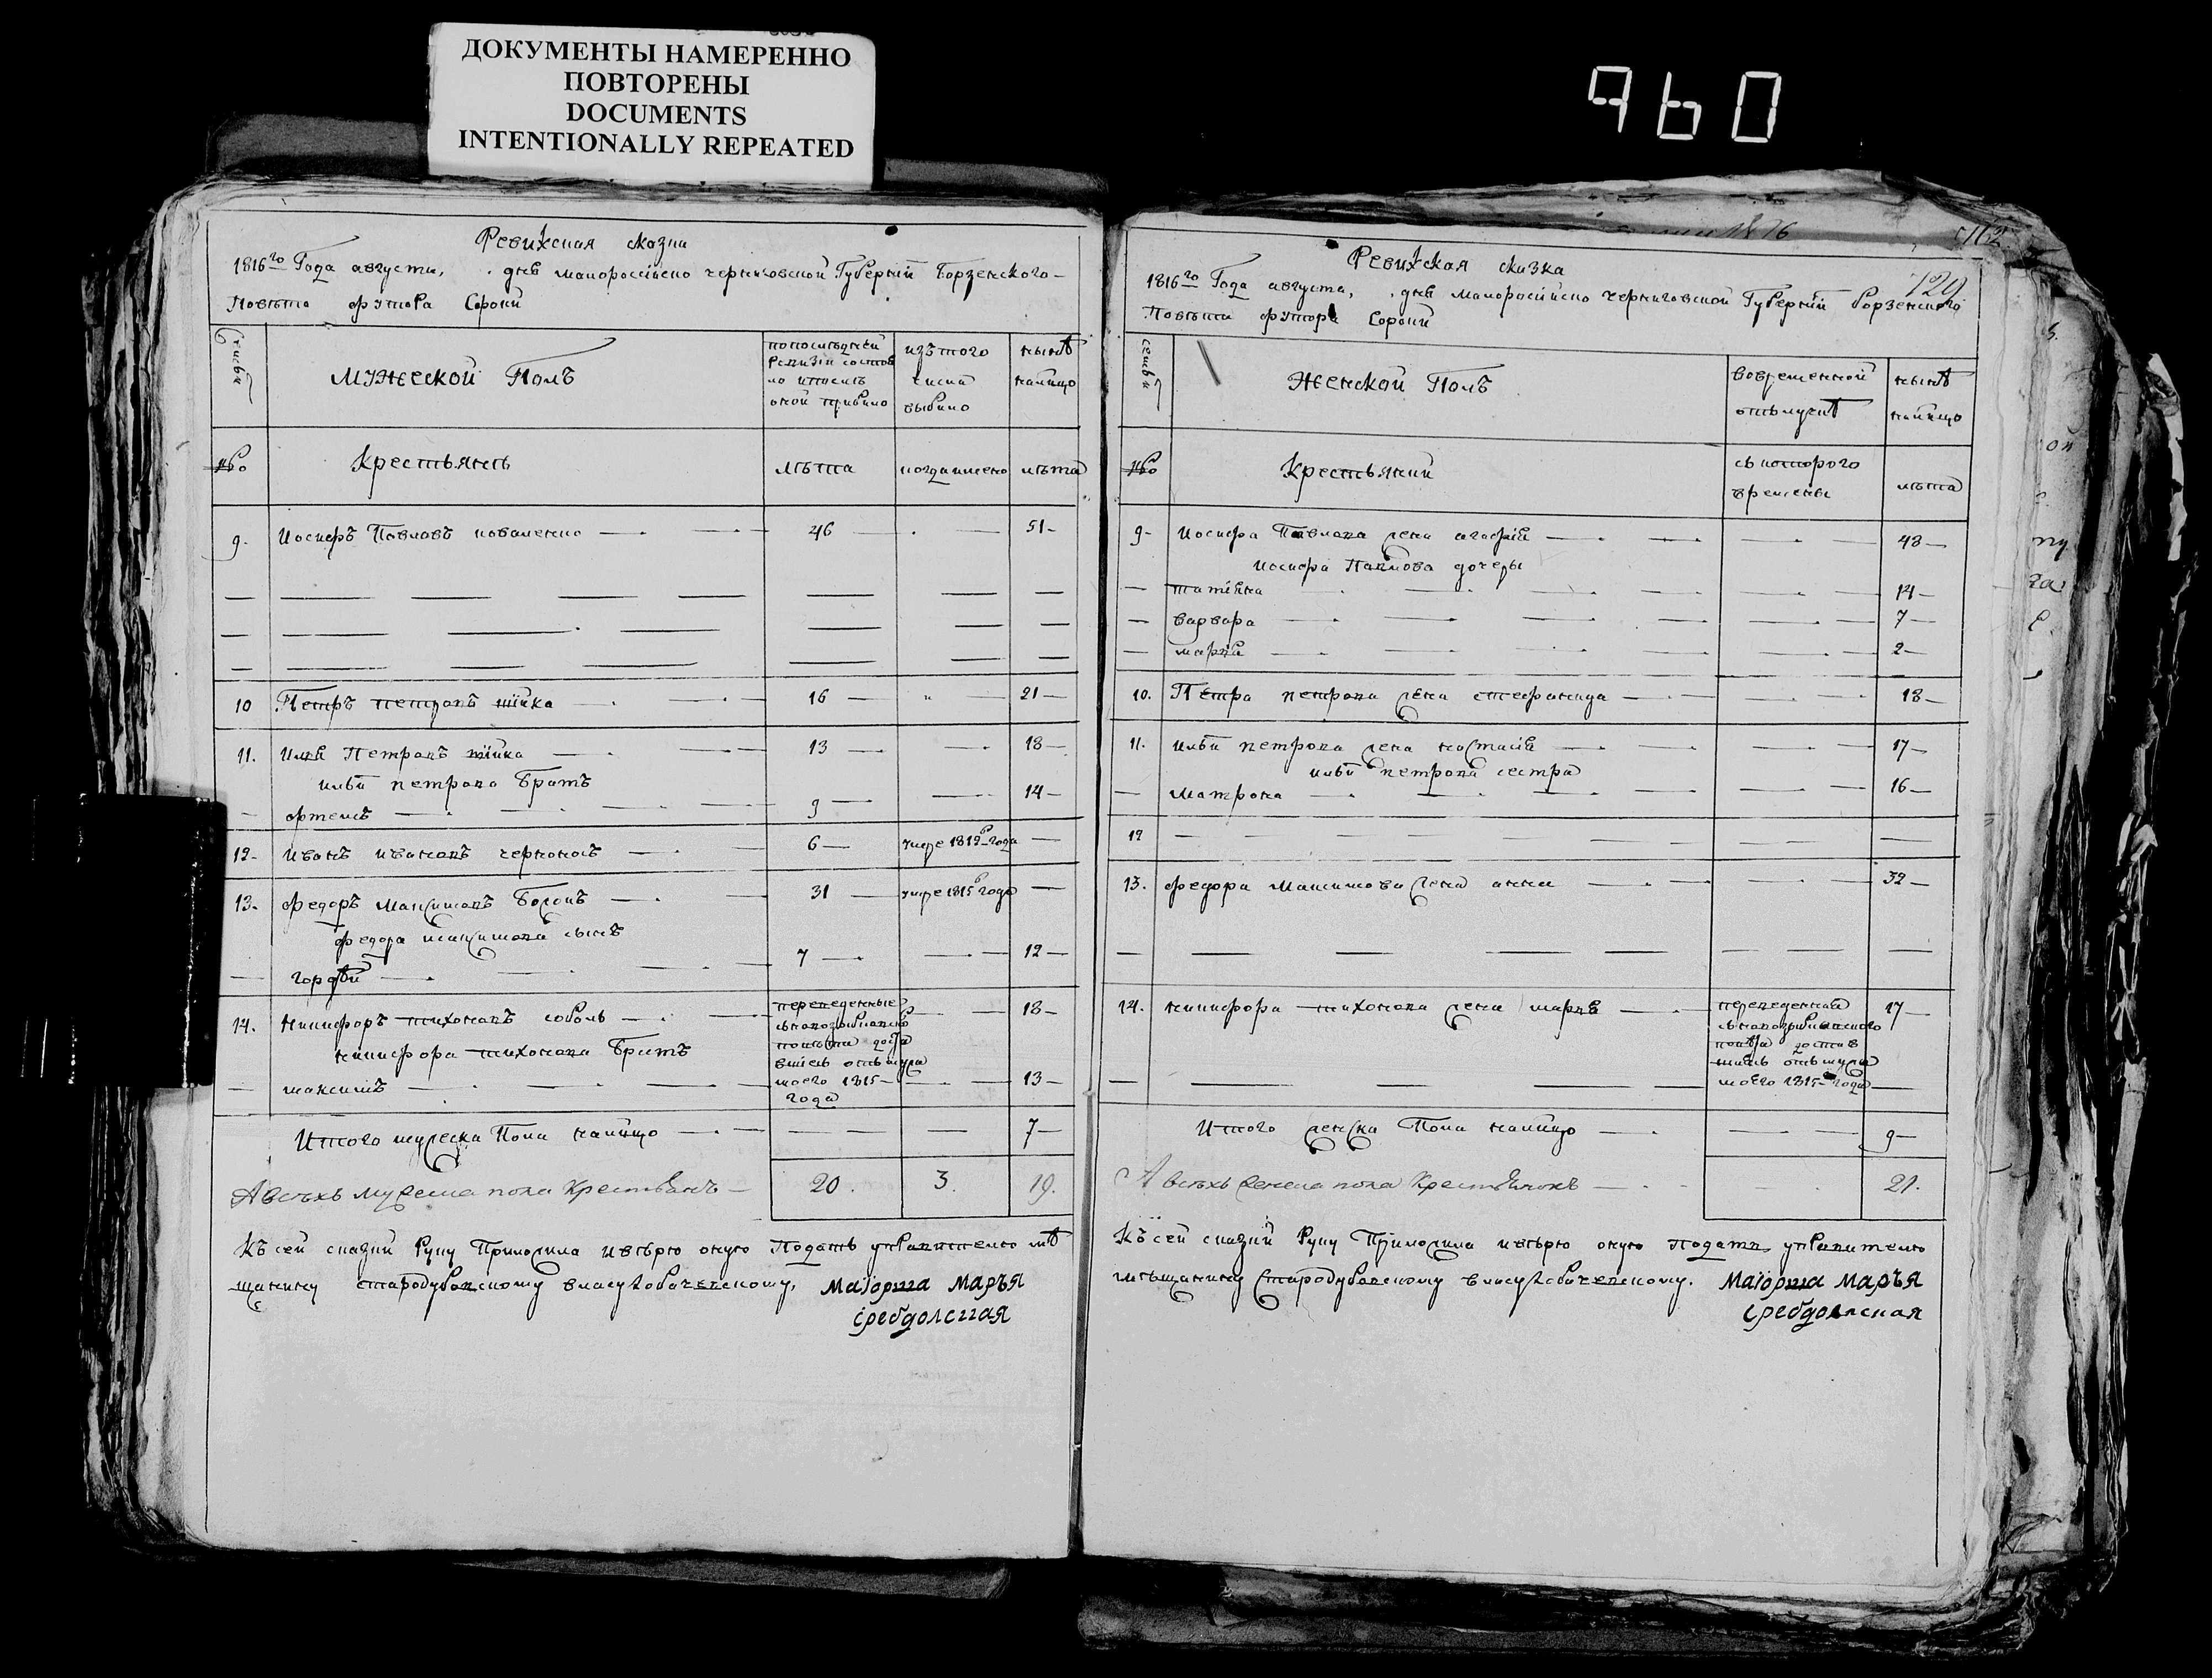 ДОКУМЕНТЫ НАМЕРЕННО
ПОВТОРЕНЫ
DOCUMENTS
INTENTIONALLY REPEATED
960
Ревижская сказка
1816го Года августа, дня малороссійско черниговской Губерніи Борзенского
Повѣта футора Сороки
Семьи
Мужеской Полъ
попоследней ревизіи состояло и после оной прибыло
изъ того числа выбыло
нынѣ налицо
№
Крестьянѣ
лѣта
когда имено
лѣта
9. Иосифъ Павловъ коваленко 46 51
10 Петръ петровъ шійка 16 21
11. Илья Петровъ шійка 13 18
ильи петрова Братъ
артемъ 9 14
12. иванъ ивановъ чернюкъ 6 умре 1812 года
13. федоръ Максимовъ 31 умре 1815 года
федора максимова сынъ
гордѣй 7 12
14. никифоръ тихоновъ соболь 18
никифора тихонова Братъ
максимъ 13
переведенные
повѣта
1815
года
Итого мужеска Пола налицо 7
А всѣхъ мужеска пола Крестьянъ 20. 3. 19.
Къ сей сказки Руку Приложила и вѣрю оную Подать управителю мѣ
щанину стародубовскому власу лобачевскому, маіорша маръя
сребдолская
112
129
Ревижская сказка
1816го Года августа, дня малоросійско черниговской Губерній борзенского
Повѣта футора Сороки
семьи
Женской Полъ
вовременной отълучкѣ
нынѣ налицо
№
Крестьянки
съ которого времены
лѣта
9. Иосифа Павлова жена агафія 43
иосифа Павлова дочеры
татіяна 14
варвара 7
марія 2
10. Петра петрова жена стефанида 18
11. ильи петрова жена настасія 17
ильи петрова сестра
Матрона 16
12
13. федора Максимова жена анна 32
14. никифора тихонова жена марія 17
переведенная
1815 года
Итого женска Пола налицо 9
А всѣхъ женска пола Крестьянокъ 21.
Къ сей сказки Руку Приложила и вѣрю оную Подать управителю
мѣщанину Стародубовскому власу лобачевскому. маіорша маръя
сребдолская